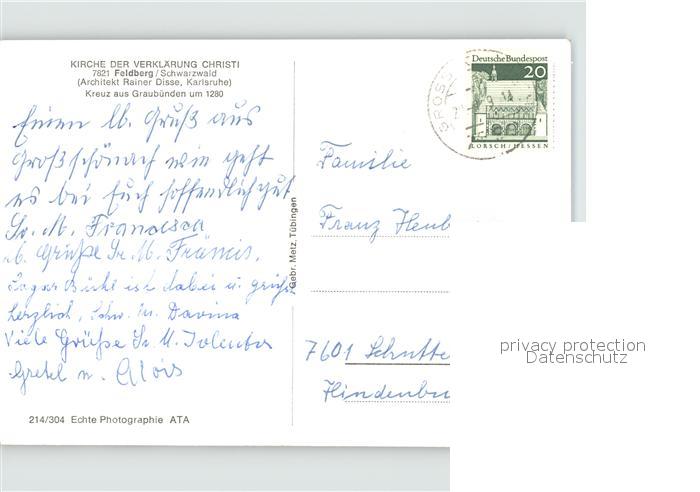 KIRCHE DER VERKLÄRUNG CHRISTI
7821 Feldberg / Schwarzwald
(Architekt Rainer Disse, Karlsruhe)
Kreuz aus Graubünden um 1280
Einen lb. Gruß aus
Großschönach wie geht
es bei Euch hoffendlich gut
Sr. M. Francesca
lb. Grüße Sr. M. Francis.
ist dabei u. grüßt
herzlich, Schw. M. Davina
Viele Grüße Sr. M. Iolenta
Gretel u. Alois
214/304 Echte Photographie ATA
Gebr. Metz, Tübingen
Deutsche Bundespost
20
LORSCH/HESSEN
GROSS
Familie
Franz Heub
7601 Schutte
Hindenbu
privacy protection
Datenschutz